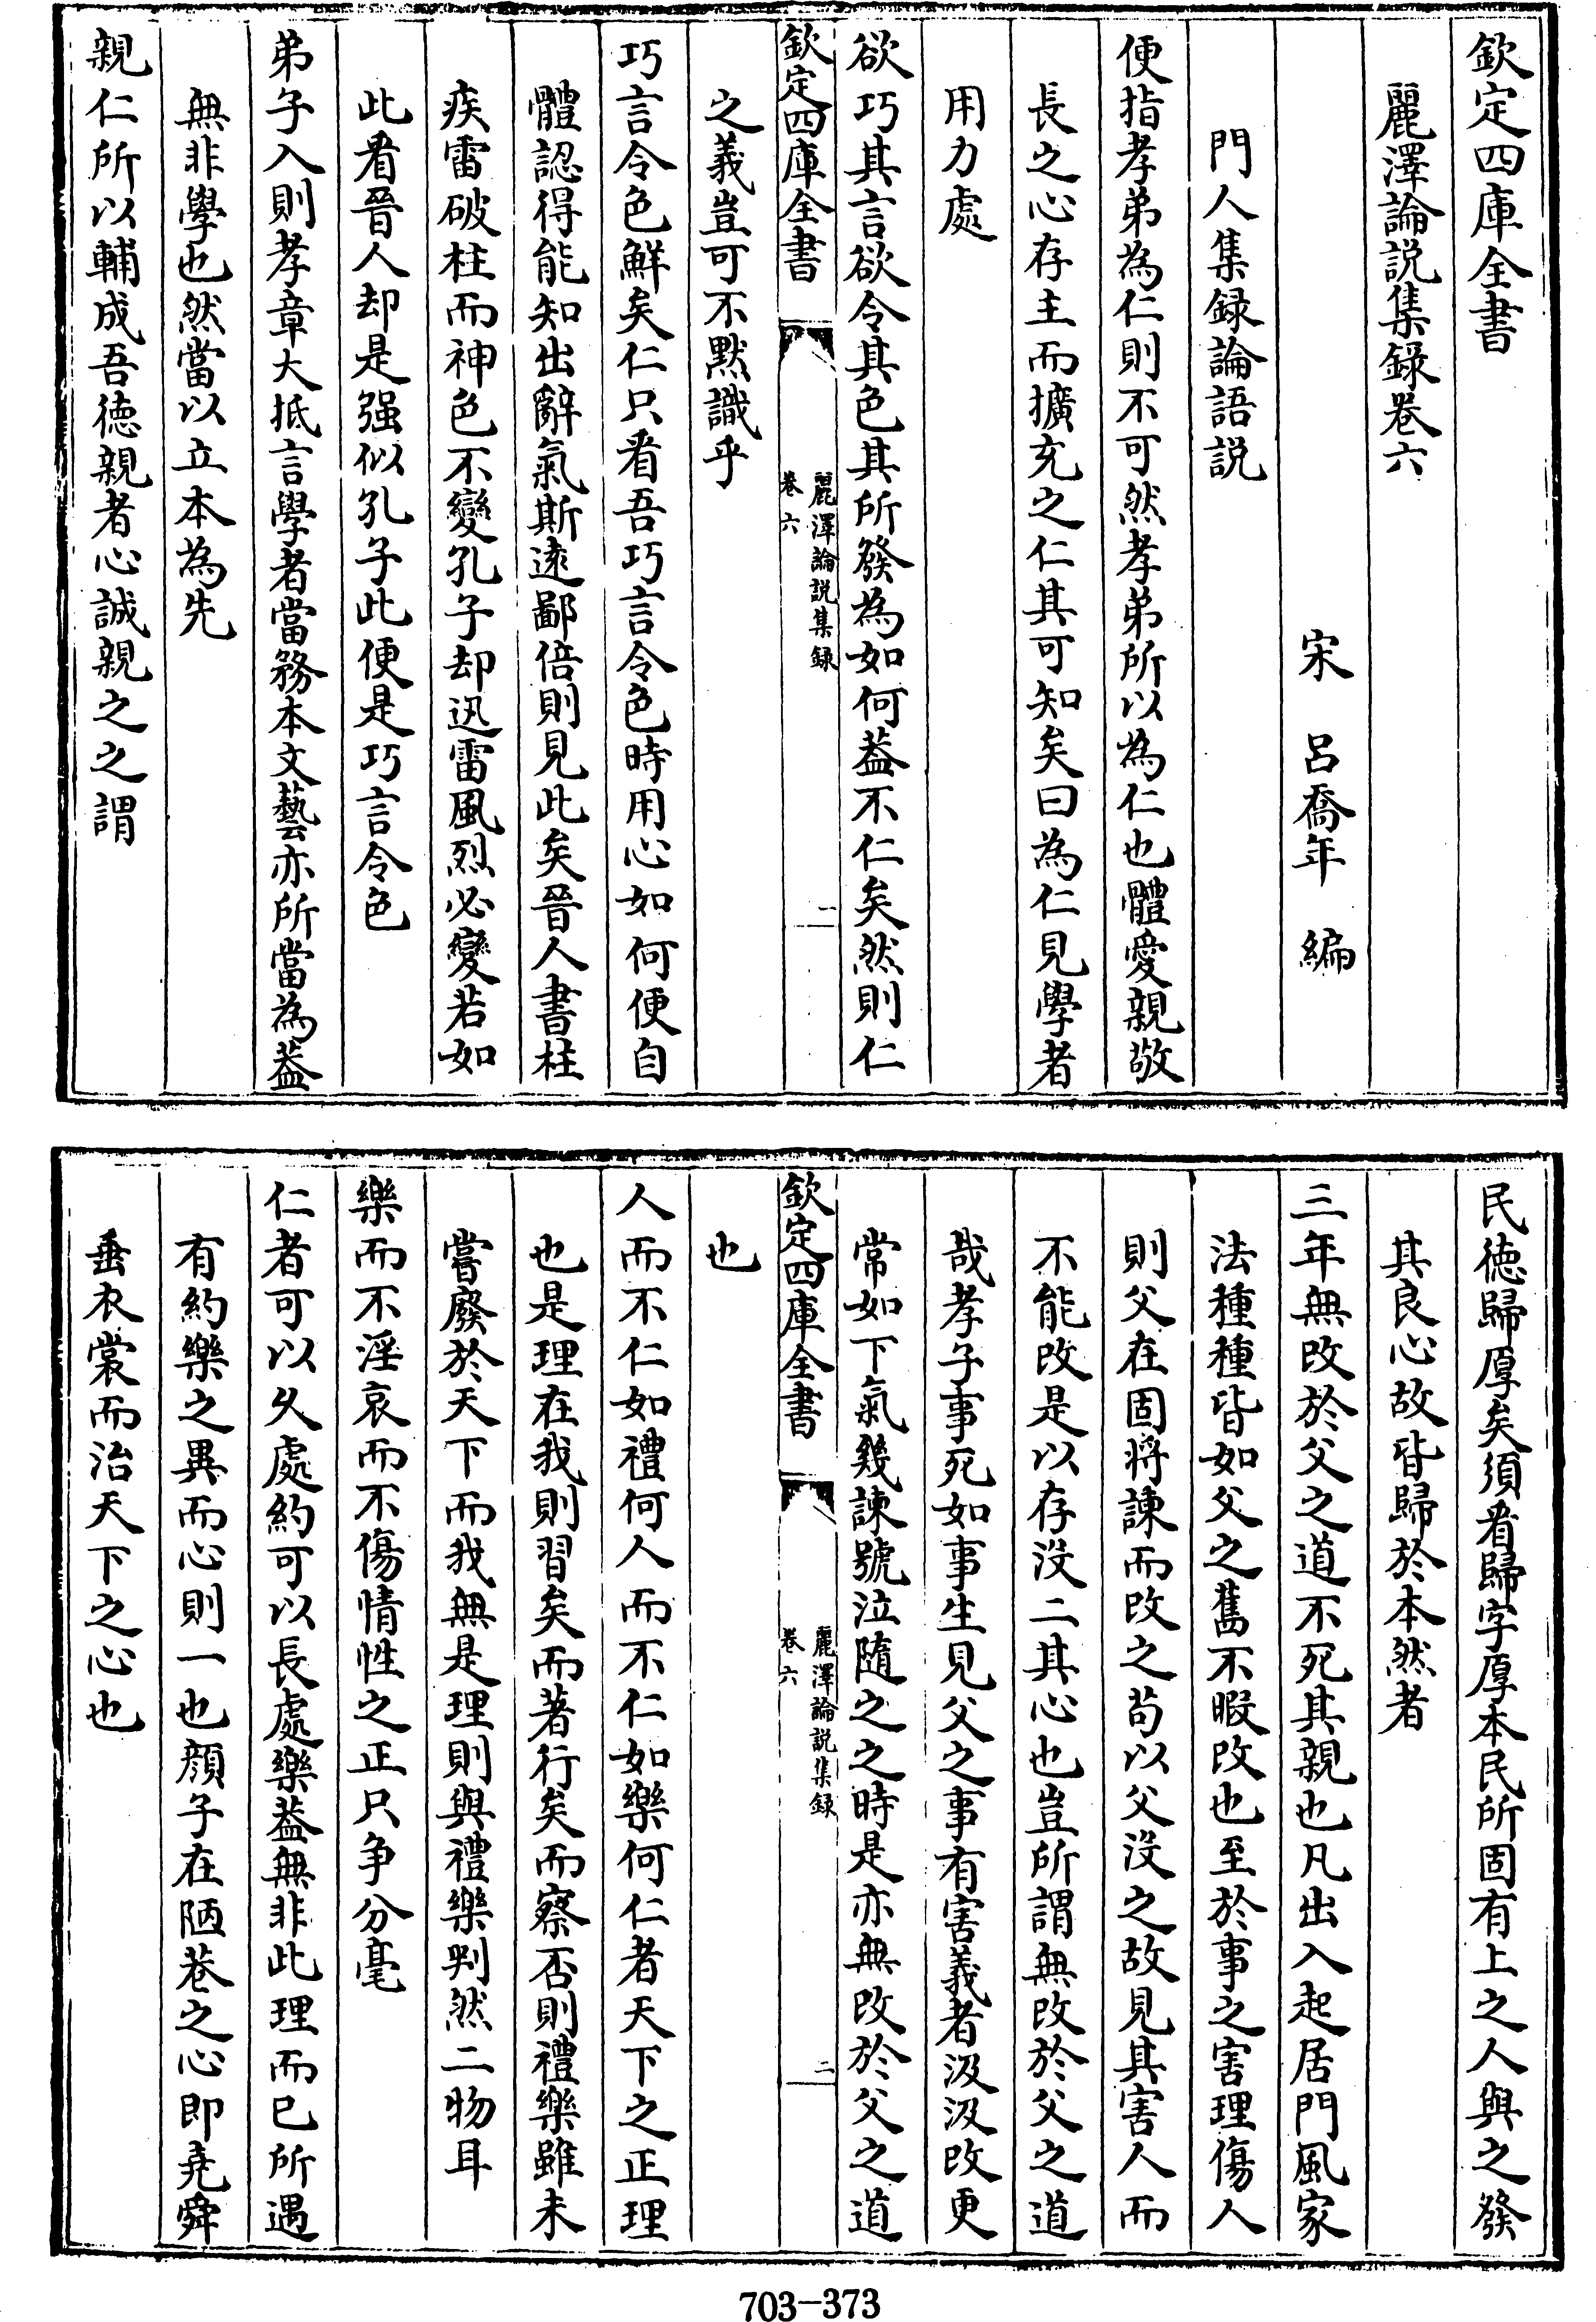 欽定四庫全書
麗澤論説集録卷六
宋 呂喬年 編
門人集録論語説
便指孝弟為仁則不可然孝弟所以為仁也體愛親敬
長之心存主而擴充之仁其可知矣曰為仁見學者
用力處
欲巧其言欲令其色其所發為如何葢不仁矣然則仁
欽定四庫全書
麗澤論説集録
卷六
一
之義豈可不黙識乎
巧言令色鮮矣仁只看吾巧言令色時用心如何便自
體認得能知出辭氣斯逺鄙倍則見此矣晉人書柱
疾雷破柱而神色不變孔子却迅雷風烈必變若如
此看晉人却是强似孔子此便是巧言令色
弟子入則孝章大抵言學者當務本文藝亦所當為葢
無非學也然當以立本為先
親仁所以輔成吾徳親者心誠親之之謂
民徳歸厚矣須看歸字厚本民所固有上之人與之發
其良心故皆歸於本然者
三年無改於父之道不死其親也凡出入起居門風家
法種種皆如父之舊不暇改也至於事之害理傷人
則父在固將諫而改之茍以父沒之故見其害人而
不能改是以存沒二其心也豈所謂無改於父之道
哉孝子事死如事生見父之事有害義者汲汲改更
常如下氣幾諫號泣隨之之時是亦無改於父之道
欽定四庫全書
麗澤論説集録
卷六
二
也
人而不仁如禮何人而不仁如樂何仁者天下之正理
也是理在我則習矣而著行矣而察否則禮樂雖未
嘗廢於天下而我無是理則與禮樂判然二物耳
樂而不淫哀而不傷情性之正只争分毫
仁者可以乆處約可以長處樂葢無非此理而已所遇
有約樂之異而心則一也顔子在陋巷之心即堯舜
垂衣裳而治天下之心也
703-373